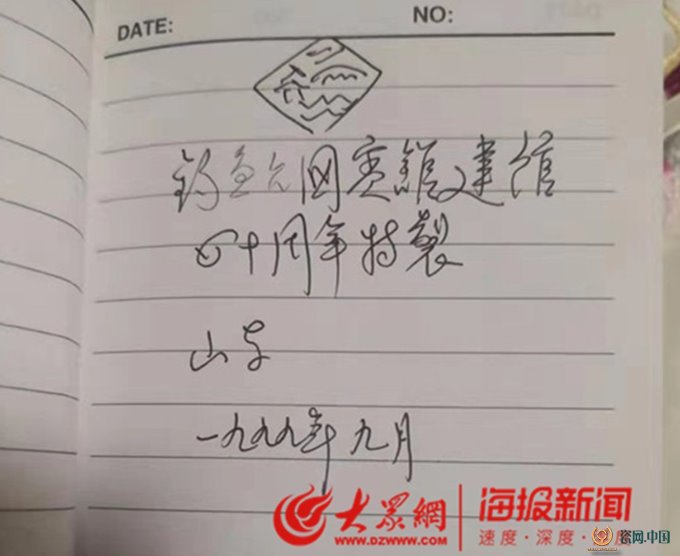 DATE: NO:
钓鱼台國賓館建馆
四十周年特製
山东
一九九九年九月
大眾網 海报新闻
www.dzwww.com 速度·深度·
瓷网.中国